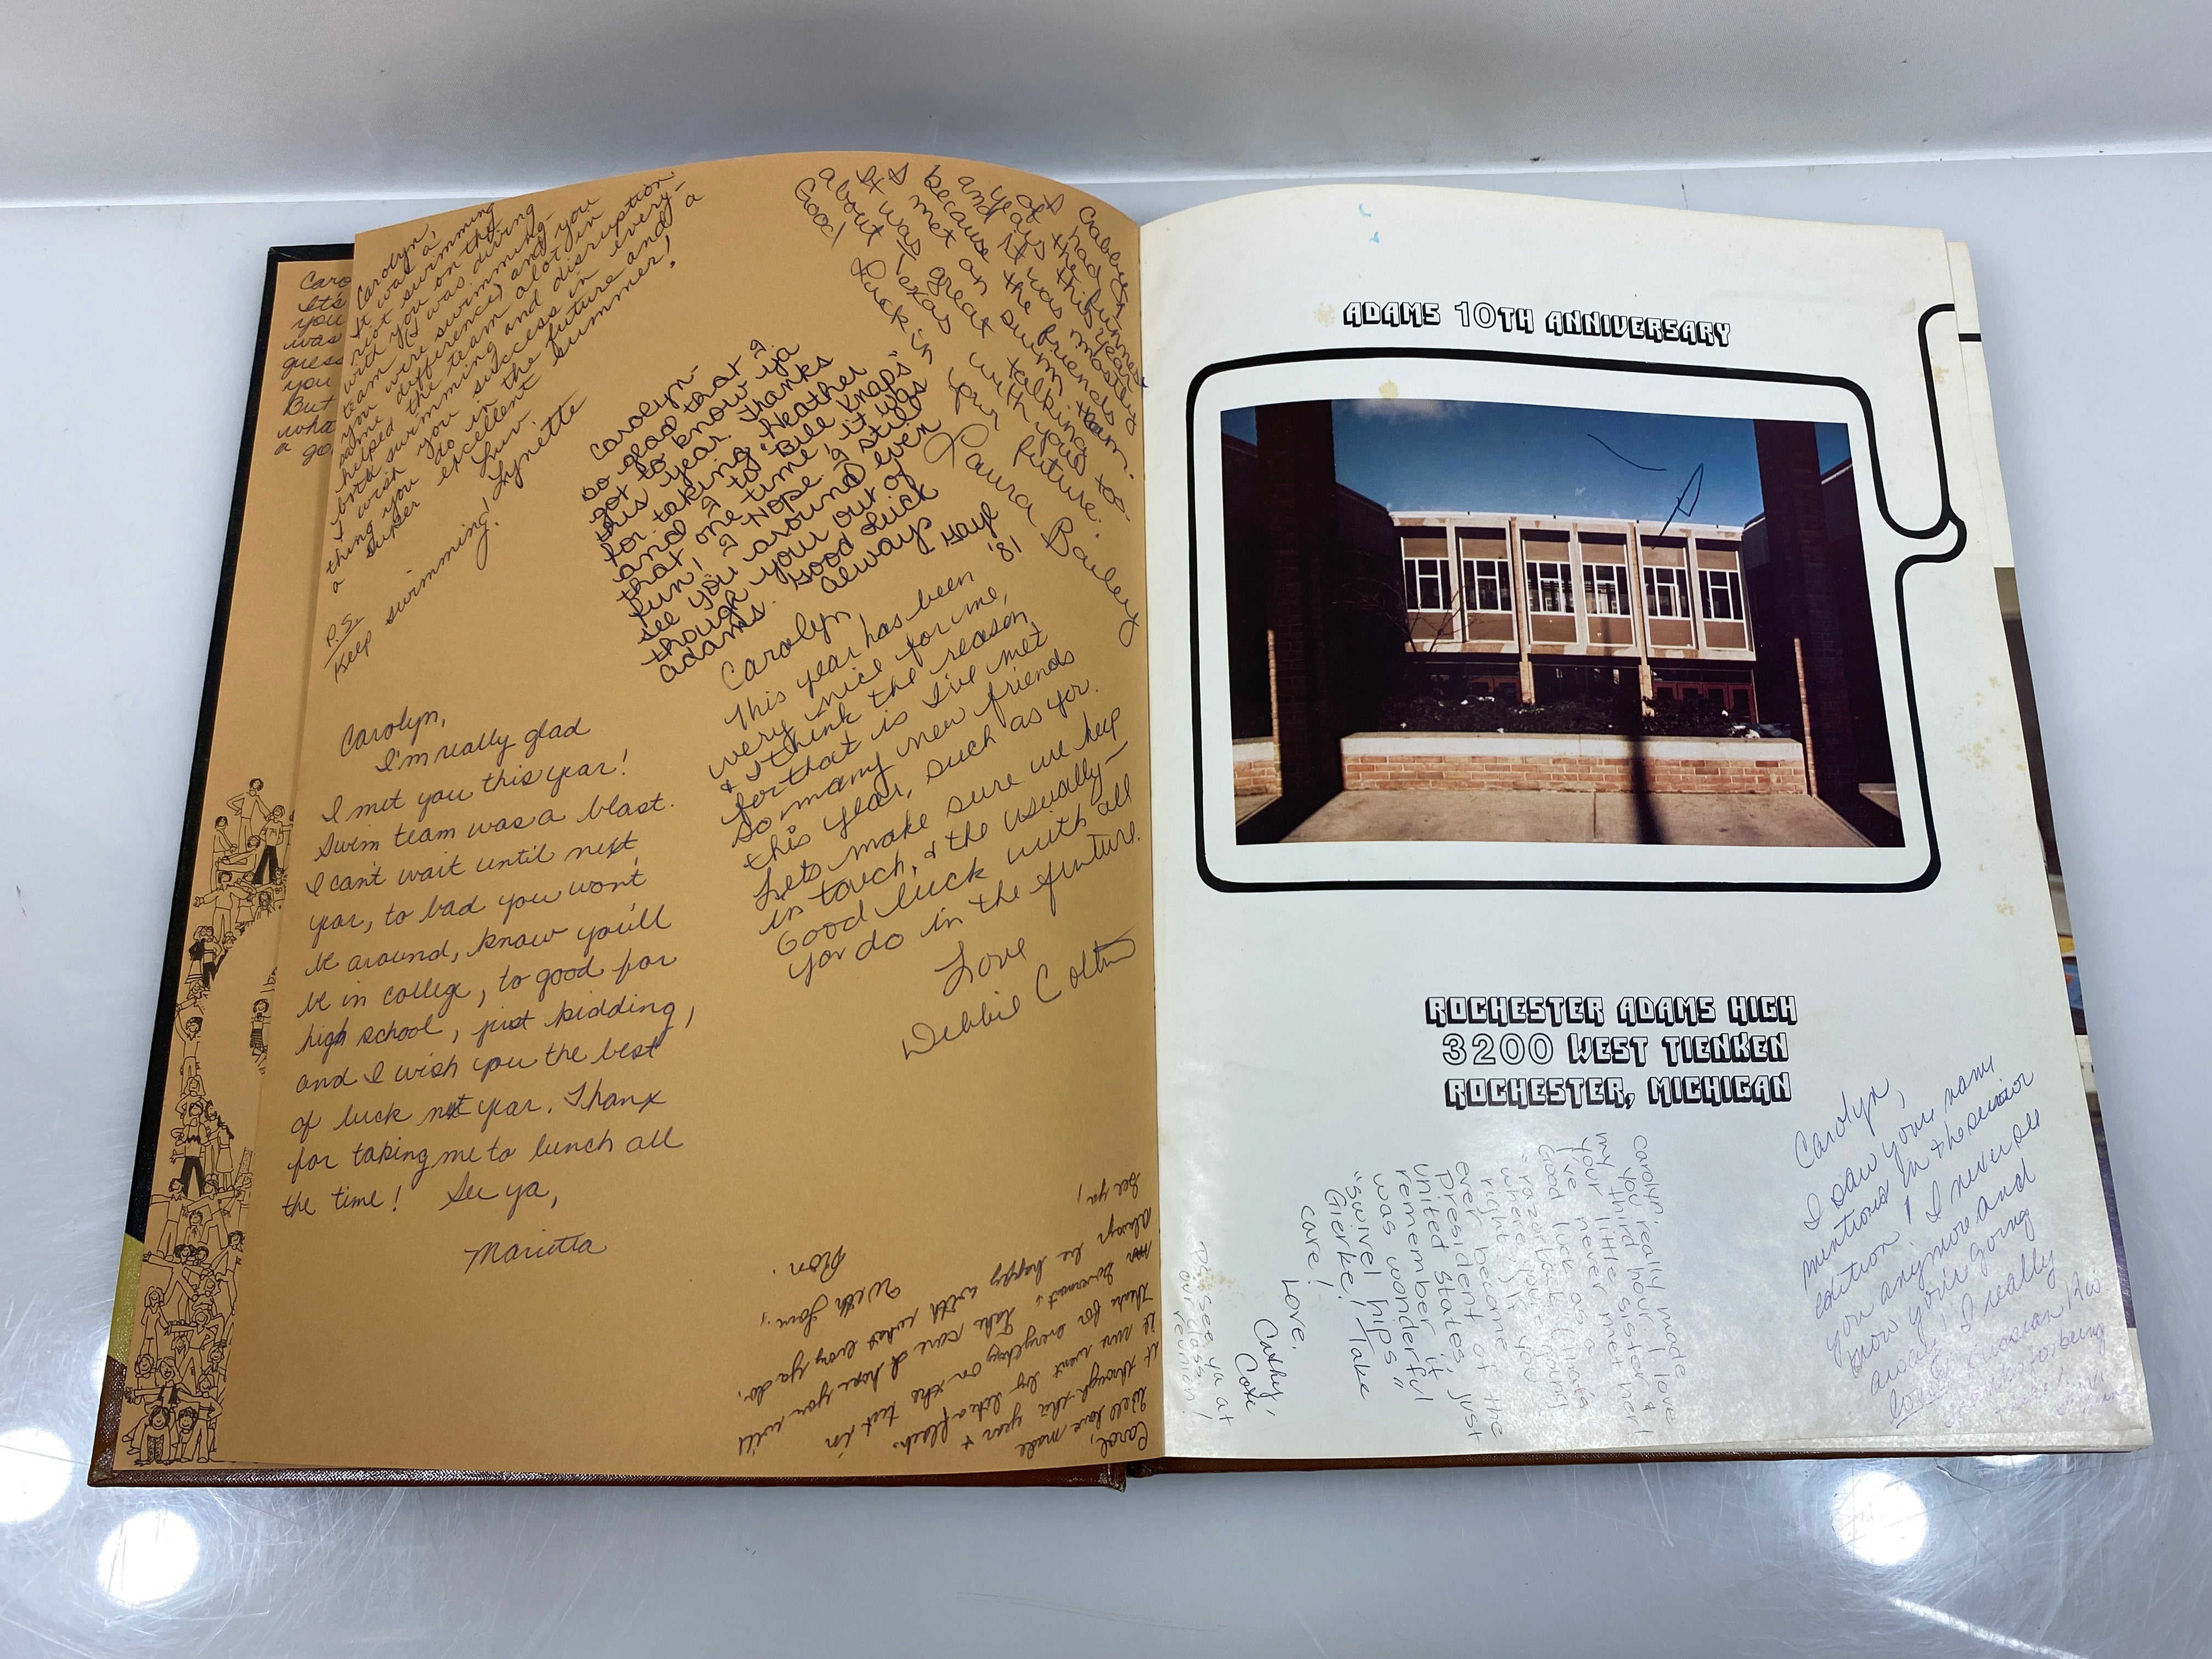 Caro
It's
you
was
guess
you
But
wha
a go
Carolyn,
It was a
riot swimming
with you on the
team (I was diving
you were swimming-
same difference) and you
helped the team alot in
both swimming and disruption
I wish you success in every-
thing you do in the future and
a super excellent summer!
Luv,
Lynette
P.S.
Keep swimming!
Carolyn-
So glad that I
got to know ya
this year. Thanks
for taking "Heather
and I to "Bill Knaps"
that one time, it was
fun! Nope I still
see you around even
though your out of
Adams. Good Luck
Always Gayl
'81
I had the funnest
of this year
years It was mostly
and the friends
because
I met on swim team.
It was great talking
about Texas with you too.
Good Luck in your future.
Laura Bailey
Carolyn
This year has been
very nice for me,
& I think the reason
for that is I've met
so many new friends
this year, such as you.
Lets make sure we keep
in touch, & the usually—
Good luck with all
you do in the future.
Love
Debbie
Carolyn,
I'm really glad
I met you this year!
Swim team was a blast.
I can't wait until next
year, to bad you won't
be around, know you'll
be in college, to good for
high school, just kidding,
and I wish you the best
of luck next year. Thanx
for taking me to lunch all
the time! See ya,
Marietta
Carol,
Well have made
it through this year &
it sure went by like a flash.
Thanks for everything on the test in
Goverment, Take care I hope you will
Always be happy with what every ya do.
See ya,
With Love,
Ron.
ADAMS 10TH ANNIVERSARY
ROCHESTER ADAMS HIGH
3200 WEST TIENKEN
ROCHESTER, MICHIGAN
Carolyn,
You really made
my third hour. I love
your little sister &
I've never met her!
Good luck as a
"razorback" (that's
where you're going
right?) If you
ever become the
President of the
United States, just
remember it
was wonderful
"swivel hips"
Gierke! Take
care!
Love,
Cathy
Cox
P.S. See ya at
our class
reunion!
Carolyn,
I saw your name
mentioned in the senior
edition! I never see
you anymore and
know you're going
away! I really
being